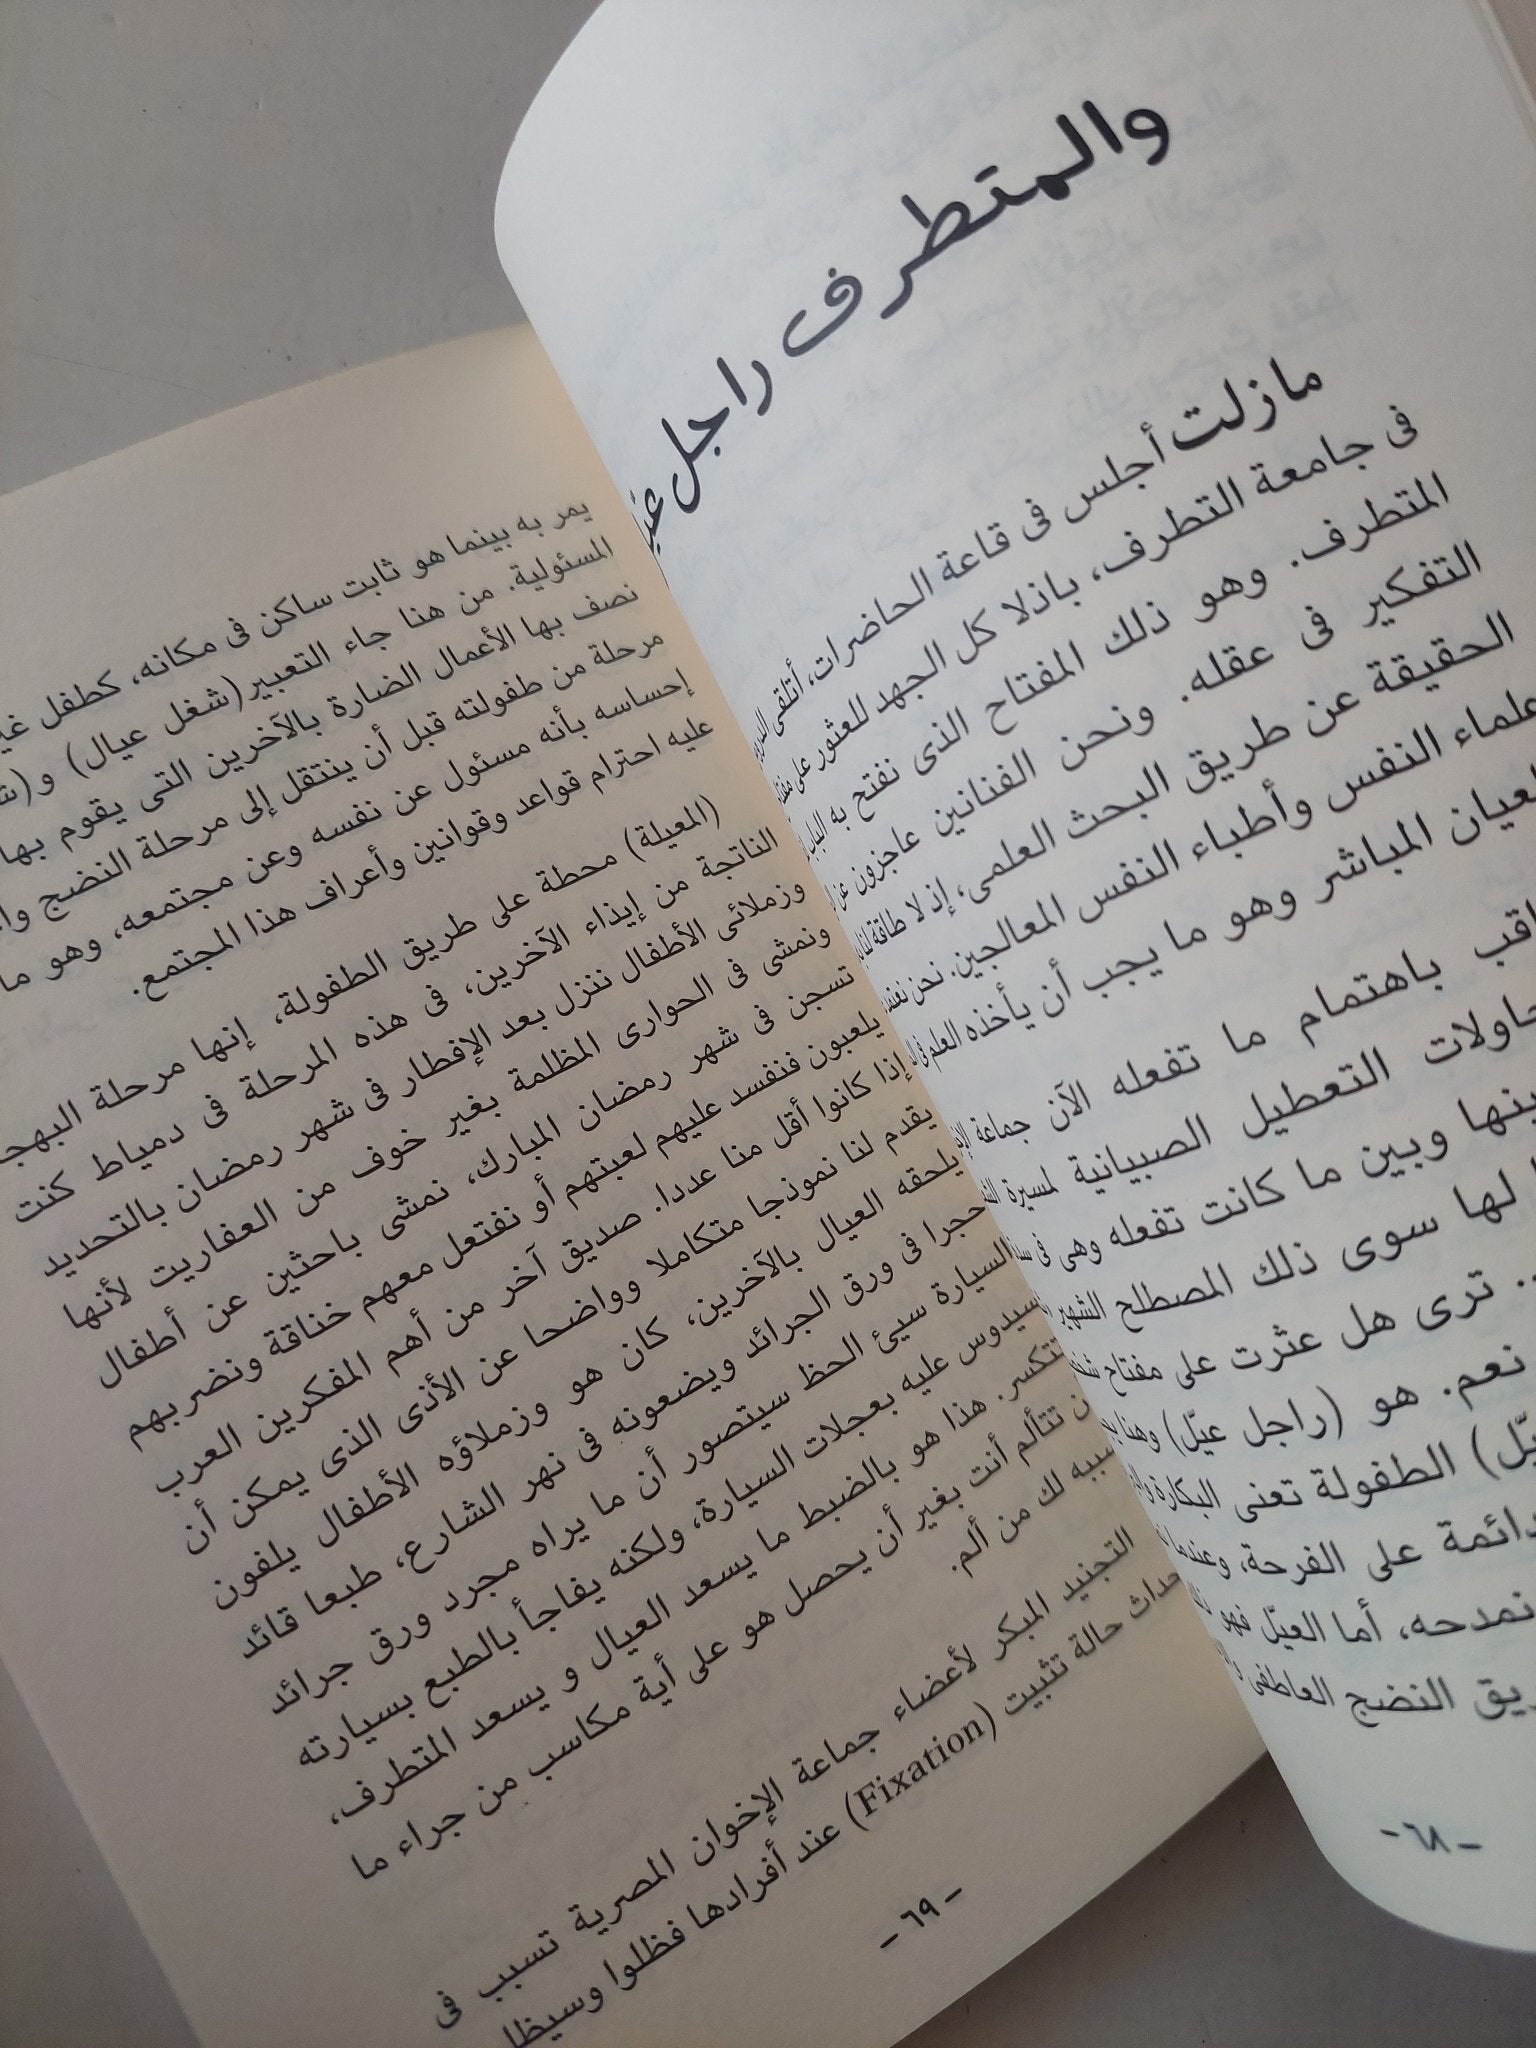 والمتطرف راجل
مازلت أجلس فى قاعة الحاضرات، أتلقى
فى جامعة التطرف، باذلا كل الجهد للعثور على
المتطرف. وهو ذلك المفتاح الذى نفتح به
التفكير فى عقله. ونحن الفنانين عاجزون عن
الحقيقة عن طريق البحث العلمى، إذ لا طاقة
علماء النفس وأطباء النفس المعالجين. نحن
المباشر وهو ما يجب أن يأخذه العلم
باهتمام ما تفعله الآن جماعة
التعطيل الصبيانية لمسيرة
وبين ما كانت تفعله وهى فى
لها سوى ذلك المصطلح الشهير
ترى هل عثرت على مفتاح
نعم. هو (راجل عيّل) وهنا
الطفولة تعنى البكارة
على الفرحة، وعندما
نمدحه، أما العيّل فهو
النضج العاطفى
- ٦٨ -
يمر به بينما هو ثابت ساكن فى مكانه، كطفل
المسئولية. من هنا جاء التعبير (شغل عيال)
نصف بها الأعمال الضارة بالآخرين التى يقوم بها
مرحلة من طفولته قبل أن ينتقل إلى مرحلة النضج
إحساسه بأنه مسئول عن نفسه وعن مجتمعه، وهو ما
عليه احترام قواعد وقوانين وأعراف هذا المجتمع.
(المعيلة) محطة على طريق الطفولة، إنها مرحلة
الناتجة من إيذاء الآخرين، فى هذه المرحلة فى دمياط كنت
وزملائى الأطفال ننزل بعد الإفطار فى شهر رمضان بالتحديد
ونمشى فى الحوارى المظلمة بغير خوف من العفاريت لأنها
تسجن فى شهر رمضان المبارك، نمشى باحثين عن أطفال
يلعبون فنفسد عليهم لعبتهم أو نفتعل معهم خناقة ونضربهم
إذا كانوا أقل منا عددا. صديق آخر من أهم المفكرين العرب
يقدم لنا نموذجا متكاملا وواضحا عن الأذى الذى يمكن أن
يلحقه العيال بالآخرين، كان هو وزملاؤه الأطفال يلفون
حجرا فى ورق الجرائد ويضعونه فى نهر الشارع، طبعا قائد
السيارة سيئ الحظ سيتصور أن ما يراه مجرد ورق جرائد
سيدوس عليه بعجلات السيارة، ولكنه يفاجأ بالطبع بسيارته
تتكسر. هذا هو بالضبط ما يسعد العيال و يسعد المتطرف،
تتألم أنت بغير أن يحصل هو على أية مكاسب من جراء ما
لك من ألم.
التجنيد المبكر لأعضاء جماعة الإخوان المصرية تسبب فى
حالة تثبيت (Fixation) عند أفرادها فظلوا
- ٦٩ -